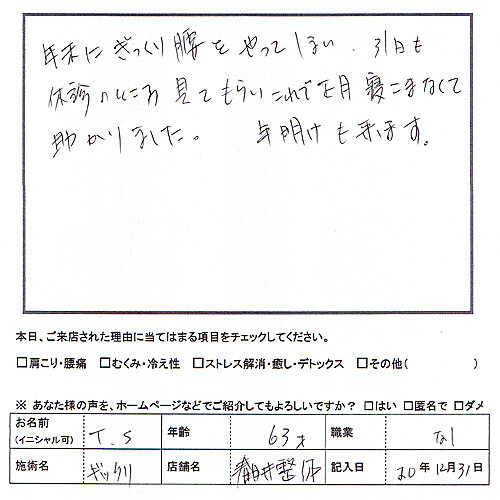 年末にぎっくり腰をやってしまい、31日も
休診のところ見てもらいこれで正月寝こまなくて
助かりました。 年明けも来ます。
本日、ご来店された理由に当てはまる項目をチェックしてください。
□肩こり・腰痛 □むくみ・冷え性 □ストレス解消・癒し・デトックス □その他( )
※ あなた様の声を、ホームページなどでご紹介してもよろしいですか？ □はい □匿名で □ダメ
お名前 (イニシャル可) T.S 年齢 63才 職業 なし
施術名 ギックリ 店舗名 井整体 記入日 20年12月31日